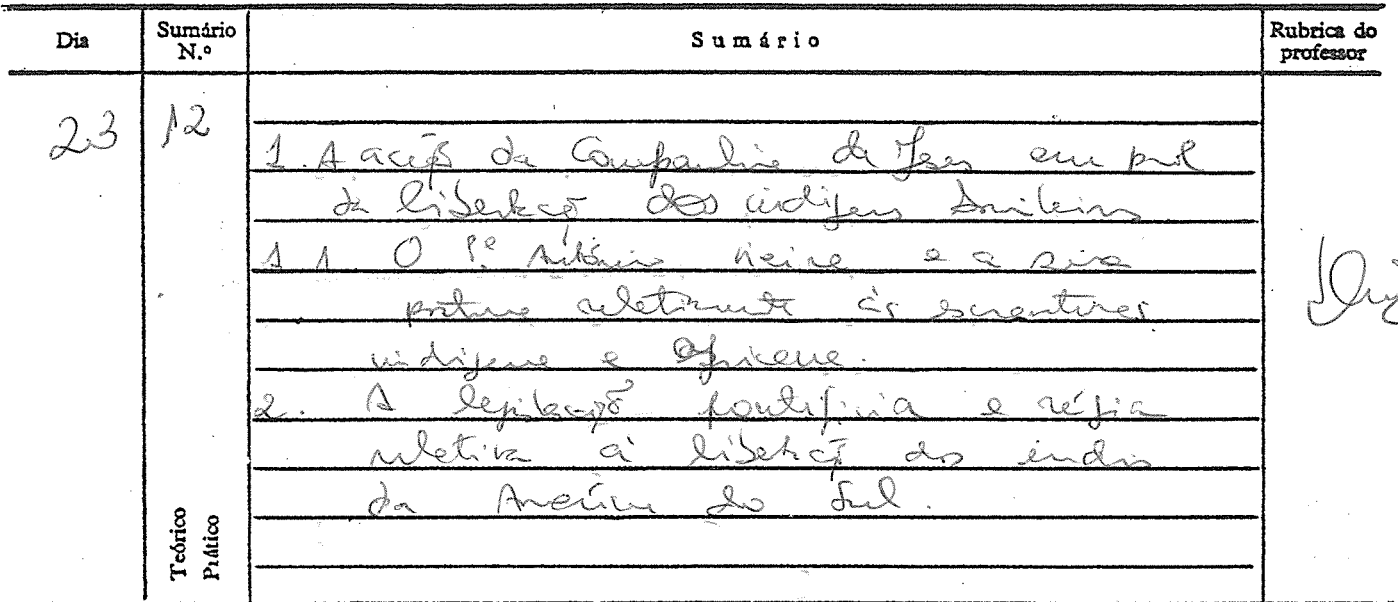 Dia
Sumário N.º
Sumário
Rubrica do professor
23
12
1. A acção da Companhia de Jesus em prol
da libertação dos indígenas brasileiros
1.1. O P.e António Vieira e a sua
postura relativamente às escravaturas
indígena e africana.
2. A legislação pontifícia e régia
relativa à libertação dos índios
da América do Sul.
Teórico
Prático